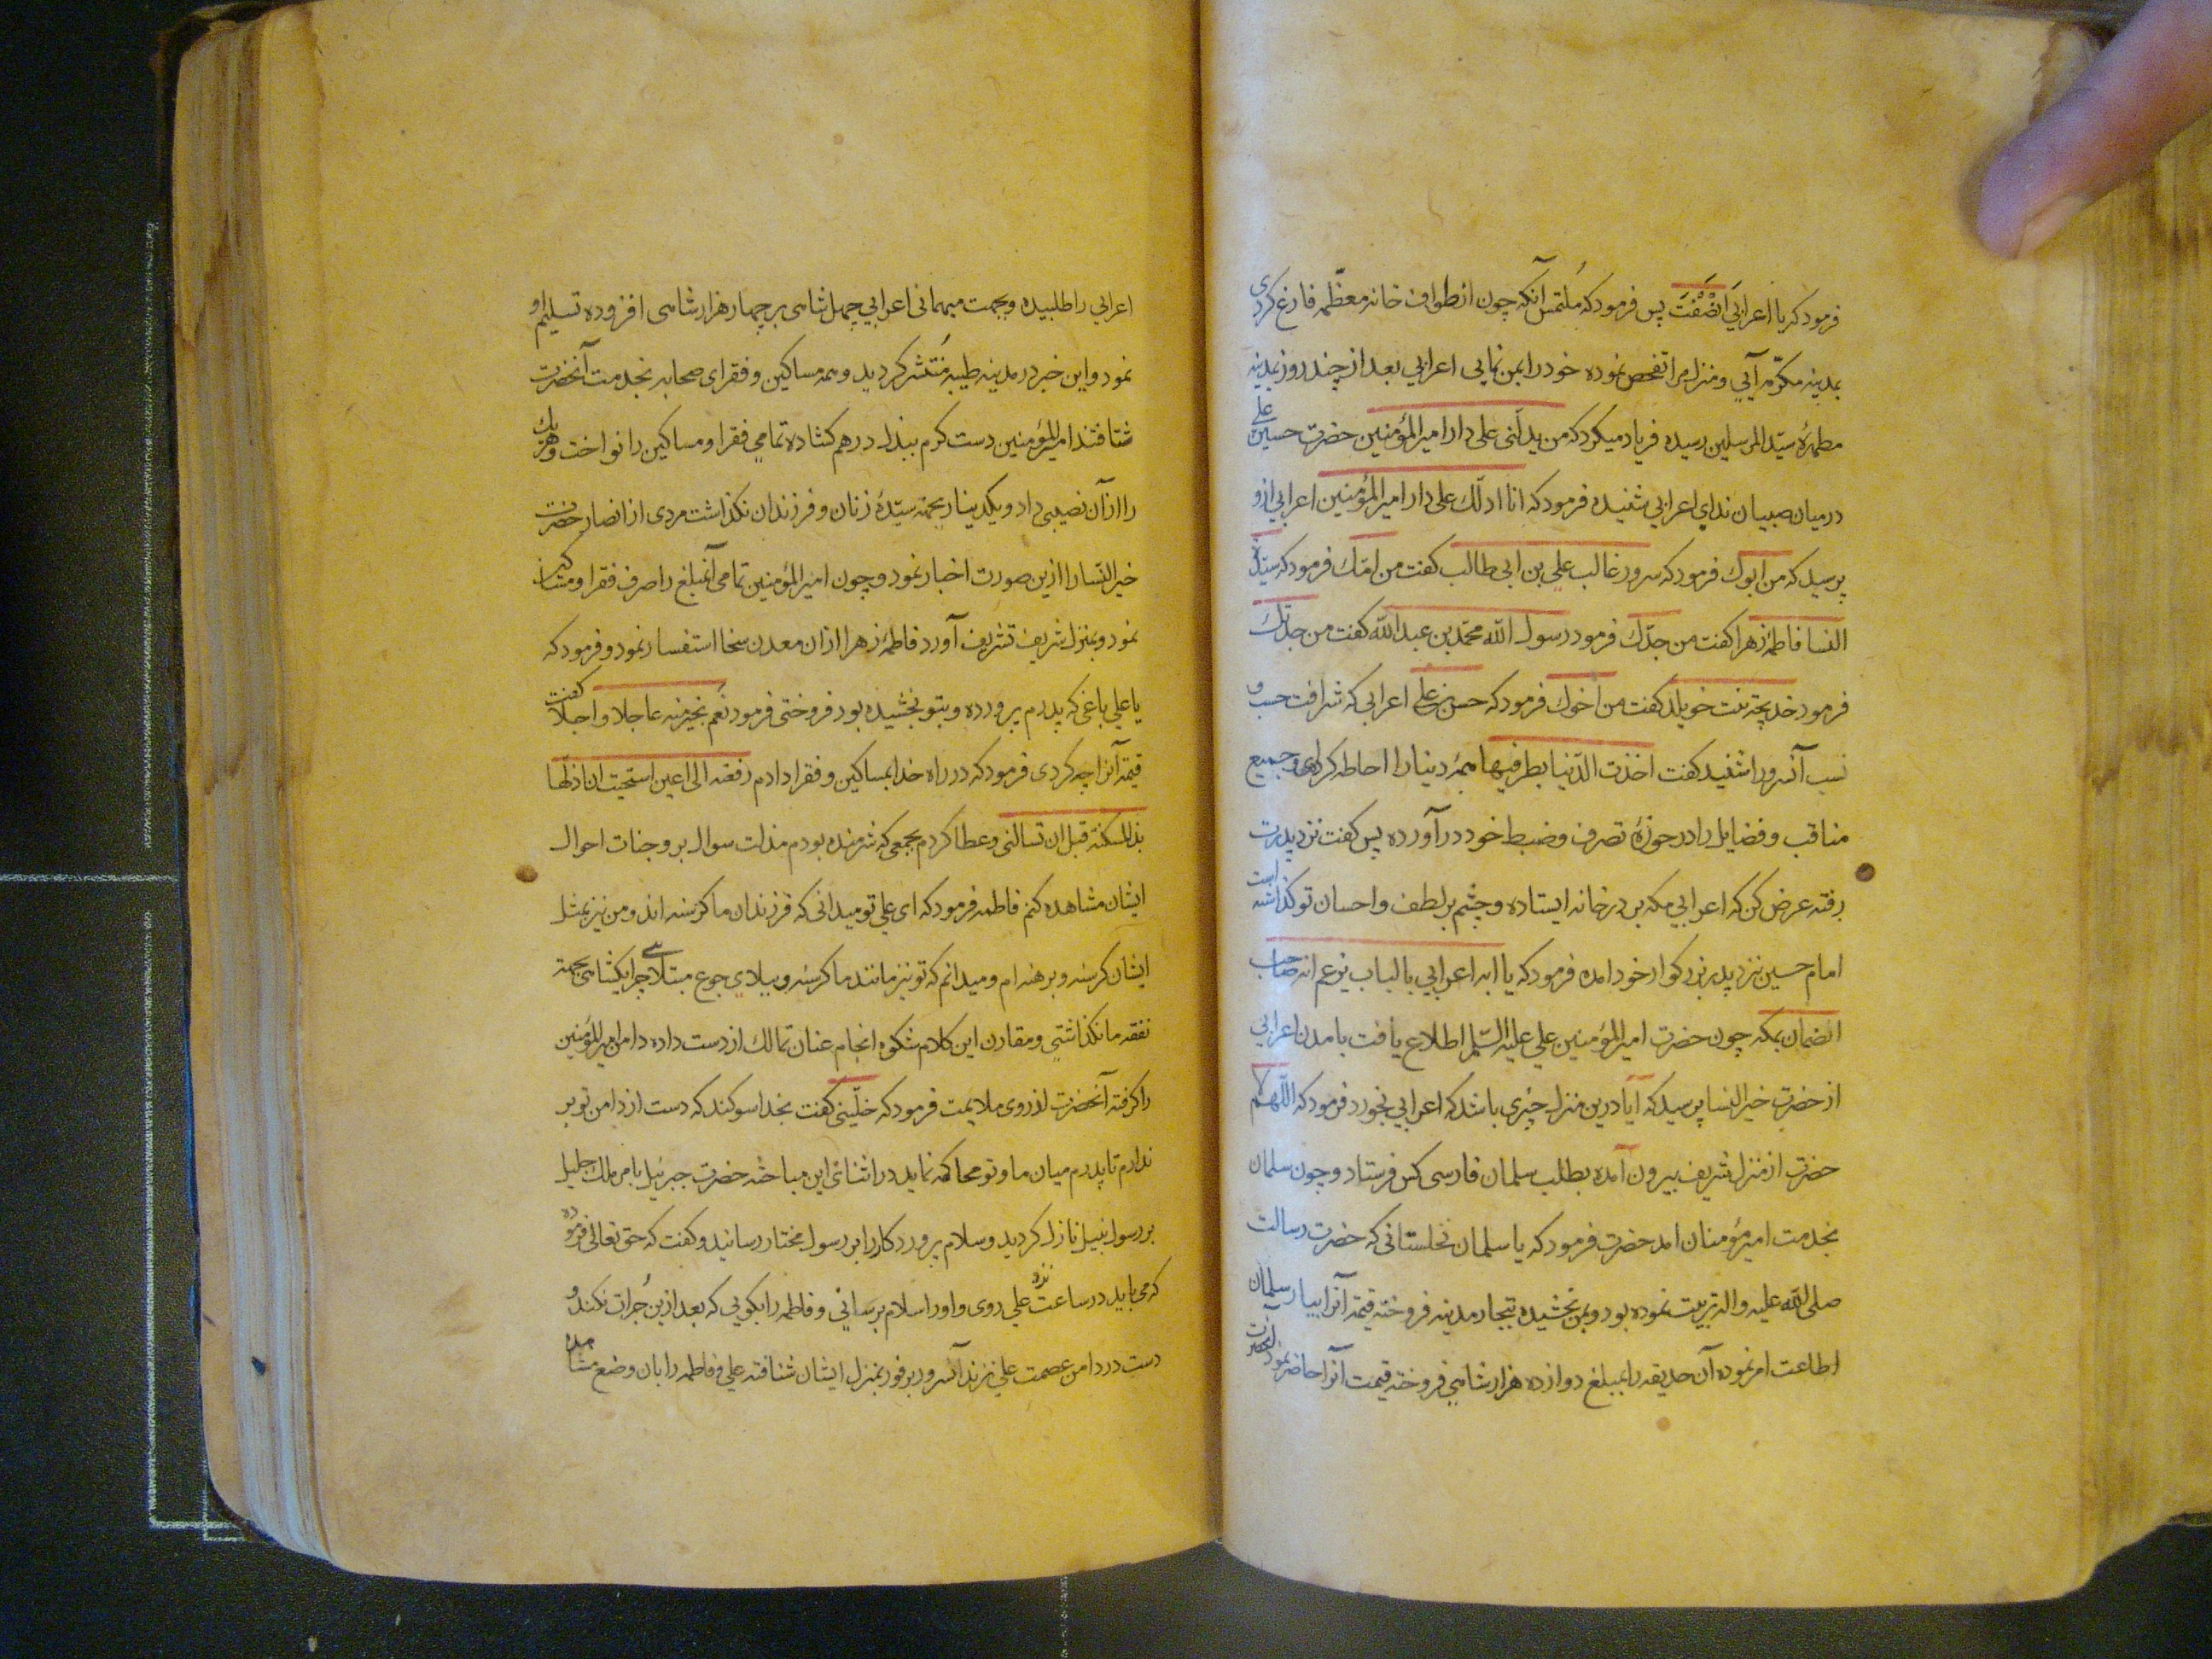 فرمود که یا اعرابی اَنْصَفْتَ پس فرمود که مُلتمس آنکه چون از طواف خانه معظّمه فارغ کردی
بمدینه مکرّمه آیی و منزل مرا تفحص نموده خود را بمن نمایی اعرابی بعد از چند روز بمدینه
مطهرهٔ سیّد المرسلین رسیده فریاد میکرد که من یدلّنی علی دار امیر المؤمنین حضرت حسین علی
درمیان صبیان ندای اعرابی شنیده فرمود که انا ادلّک علی دار امیر المؤمنین اعرابی ازو
پرسید که من ابوک فرمود که سرور غالب علی بن ابی طالب کفت من امّک فرمود که سیّدة
النسا فاطمهٔ زهرا کفت من جدّک فرمود رسول الله محمّد بن عبد الله کفت من جدّتک
فرمود خدیجة بنت خویلد کفت من اخوک فرمود که حسن بن علی اعرابی که شرافت حسب و
نسب آنسرور را شنید کفت اخذت الدّنیا بطرفیها همهٔ دنیا را احاطه کرده‌ای و جمیع
مناقب و فضایل را در حوزهٔ تصرف و ضبط خود در آورده پس کفت نزد پدرت
رفته عرض کن که اعرابی مکه بر در خانه ایستاده و چشم بر لطف و احسان تو کذاشته است
امام حسین نزد پدر بزرکوار خود امده فرمود که یا ابه اعرابی بالباب یزعم انه صاحب
الضمان بمکه چون حضرت امیر المؤمنین علی علیه السّلم اطلاع یافت بامدن اعرابی
از حضرت خیر النسا پرسید که آیا درین منزل چیزی باشد که اعرابی بخورد فرمود که اللّهم لا
حضرت از منزل شریف بیرون آمده بطلب سلمان فارسی کس فرستاد و چون سلمان
بخدمت امیر مؤمنان امد حضرت فرمود که یا سلمان نخلستانی که حضرت رسالت
صلی الله علیه و اله تربیت نموده بود و بمن بخشیده بتجار مدینه فروخته قیمة آنرا بیار سلمان
اطاعت امر نموده آن حدیقه را بمبلغ دوازده هزار شامی فروخته قیمت آنرا حاضر نمود آنحضرت
اعرابی را طلبیده و بجهت میهمانی اعرابی چهل شامی بر چهار هزار شامی افزوده تسلیم او
نمود و این خبر در مدینه طیبه مُنتشر کردید و همه مساکین و فقرای صحابه بخدمت آنحضرت
شتافتند امیر المؤمنین دست کرم ببذل درهم کشاده تمامی فقرا و مساکین را نواخت و هر یک
را از آن نصیبی داد و یکدینار بجهة سیّدهٔ زنان و فرزندان نکذاشت مردی از انصار حضرت
خیر النّسا را ازین صورت اخبار نمود و چون امیر المؤمنین تمامی آنمبلغ را صرف فقرا و مساکین
نمود و بمنزل شریف تشریف آورد فاطمهٔ زهرا ازان معدن سخا استفسار نمود و فرمود که
یا علی باغی که پدرم پرورده و بتو بخشیده بود فروختی فرمود نعم بخیر منه عاجلا و اجلا کفت
قیمة آنرا چه کردی فرمود که در راه خدا بمساکین و فقرا دادم دفعته الی اعین استحیت ان اذلّها
بذل المسکنة قبل ان تسالنی و عطا کردم بجمعی که شرمنده بودم مذلت سوال بر وجنات احوال
ایشان مشاهده کنم فاطمه فرمود که ای علی تو میدانی که فرزندان ما کرسنه اند و من نیز بمثل
ایشان کرسنه و برهنه ام و میدانم که تو نیز مانند ما کرسنه و ببلای جوع مبتلایی چرا یکشامی بجهة
نفقه ما نکذاشتی و مقارن این کلام شکوه انجام عنان تمالک از دست داده دامن امیر المؤمنین
را کرفته آنحضرت از روی ملایمت فرمود که خلّینی کفت بخدا سوکند که دست از دامن تو بر
ندارم تا پدرم میان ما و تو محاکمه نماید در اثنای این مباحثه حضرت جبرئیل بامر ملک جلیل
بر رسول نبیل نازل کردید و سلام پروردکار را بر رسول مختار رسانید و کفت که حق تعالی فرموده
که می باید در ساعت نزد علی روی و او را سلام برسانی و فاطمه را بکویی که بعد ازین جُرات نکند و
دست در دامن عصمت علی نزند آنسرور بر فور بمنزل ایشان شتافته علی و فاطمه را بان وضع مشاهده